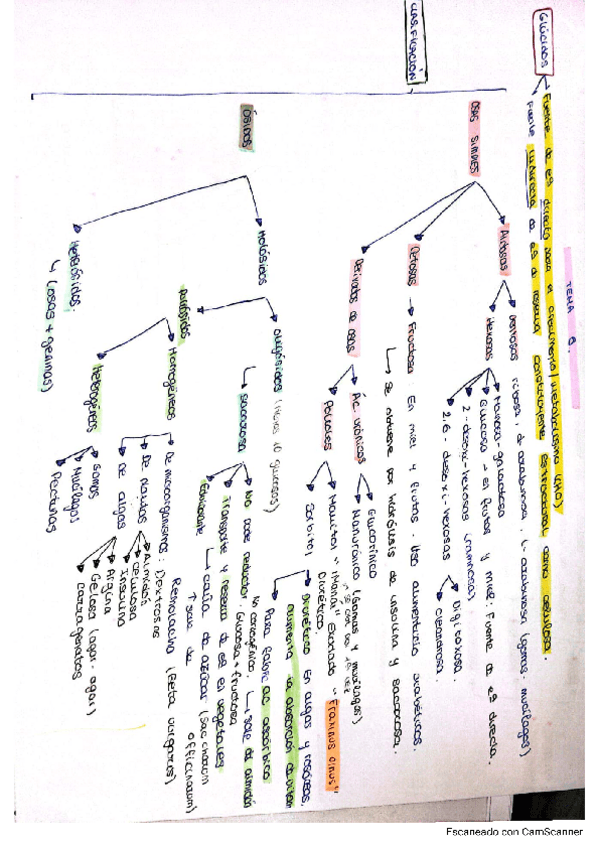 TEMA 8.
GLÚCIDOS
Fuente de eª directa para el organismo/metabolismo (CHO)
Fuente indirecta de eª de reserva constituyente estructural como celulosa.
CLASIFICACIÓN
OSAS SIMPLES
Aldosas
Pentosas ribosa, d-arabinosa, L-arabinosa (gomas, mucílagos)
Hexosas
Manosa-galactosa
Glucosa → el frutas y miel: Fuente de eª directa.
2-desoxi-hexosas (ramnosa)
2,6-desoxi-hexosas
Digitoxosa.
Cimarrosa.
Cetosas → Fructosa: En miel y frutas. Uso alimentario diabéticos.
↳ se obtiene por hidrólisis de insulina y sacarosa.
Derivados de osas
Ác. urónicos
Glucorónico
Manurónico (Gomas y mucílagos)
Polioles
Manitol "Maná" Exudado "Fraxinus ornus"
Diurético.
Sorbitol
Diurético En algas y rosáceas,
aumenta la absorción de
Para fabric AC. ascórbico
ÓSIDOS
Holósidos
Oligósidos (Hasta 10 glucosas)
sacarosa
No poder reductor. Glucosa + fructosa
No cariogénico. ↳ sale de
Transporte y reserva de eª el vegetales
Edulcorante
↳ caña de azúcar (Saccharum
↑ sale de officinarum)
Remolacha (Beta vulgaris)
Poliósidos
Homogéneos
De microorganismos: Dextranos
De plantas
Almidón
Celulosa
Insulina
De algas
Algina
Gelosa (agar-agar)
Carragenatos
Heterogéneos
Gomas
Mucílagos
Pectinas
Heterósidos:
↳ (osas + geninas)
Escaneado con CamScanner